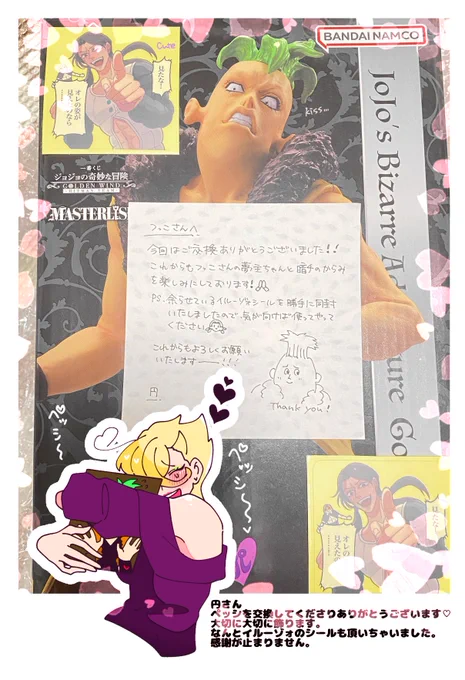 BANDAI NAMCO
Cute
見たな!
オレの姿が
見え…なら
kiss∞
一番くじ
ジョジョの奇妙な冒険
GOLDEN WIND
MASTERLISE
JoJo's Bizarre Ad
ture Go
ファニさんへ
今回はご交換ありがとうございました!!
これからもファニさんの夢主ちゃんと暗チのからみ
を楽しみにしております!
P.S. 余らせているイルーゾォシールを勝手に同封
いたしましたので、気が向けば使ってやって
ください
これからもよろしくお願い
いたします――!!
円
Thank you!
ペッシ〜
ペッシ〜〜
円さん
ペッシを交換してくださりありがとうございます♡
大切に大切に飾ります。
なんとイルーゾォのシールも頂いちゃいました。
感謝が止まりません。